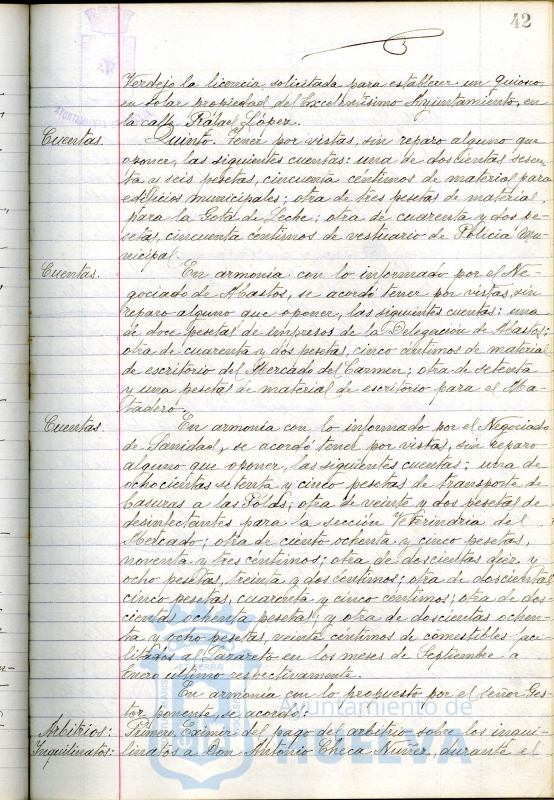 42
Verdejo la licencia solicitada para establecer un quiosco,
en solar propiedad del Excelentísimo Ayuntamiento, en
la calle Rafael López.
Cuentas. Quinto. Tener por vistas, sin reparo alguno que
oponer, las siguientes cuentas: una de doscientas sesen-
ta y seis pesetas, cincuenta céntimos de material para
edificios municipales; otra de tres pesetas de material
para la Gota de Leche; otra de cuarenta y dos pe-
setas, cincuenta céntimos de vestuario de Policía Mu-
nicipal.
Cuentas. En armonía con lo informado por el Ne-
gociado de Abastos, se acordó tener por vistas, sin
reparo alguno que oponer, las siguientes cuentas: una
de doce pesetas de impresos de la Delegación de Abastos;
otra de cuarenta y dos pesetas, cinco céntimos de material
de escritorio del Mercado del Carmen; otra de setenta
y una pesetas de material de escritorio para el Ma-
tadero.
Cuentas. En armonía con lo informado por el Negociado
de Sanidad, se acordó tener por vistas, sin reparo
alguno que oponer, las siguientes cuentas: una de
ochocientas setenta y cinco pesetas de transporte de
basuras a las Tolds; otra de veinte y dos pesetas de
desinfectantes para la sección Veterinaria del
Mercado; otra de ciento ochenta y cinco pesetas,
noventa y tres céntimos; otra de doscientas diez y
ocho pesetas, treinta y dos céntimos; otra de doscientas
cinco pesetas, cuarenta y cinco céntimos; otra de dos-
cientas ochenta pesetas; y otra de doscientas ochen-
ta y ocho pesetas, veinte céntimos de comestibles faci-
litados al Lazareto en los meses de Septiembre a
Enero último respectivamente.
En armonía con lo propuesto por el señor Ges-
tor ponente, se acordó:
Arbitrios: Primero. Eximir del pago del arbitrio sobre los inqui-
Inquilinatos: linatos a Don Antonio Checa Nuñez, durante el
Ayuntamiento de
HUELVA